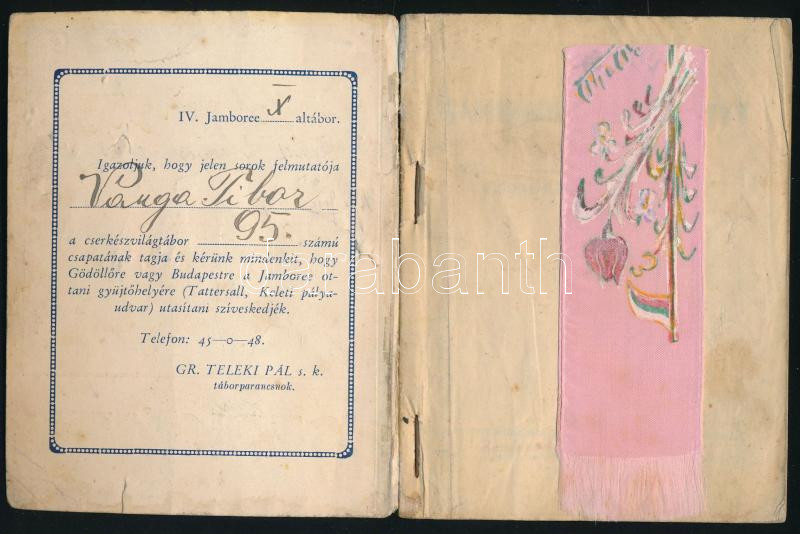 IV. Jamboree X altábor.
Igazoljuk, hogy jelen sorok felmutatója
Varga Tibor
a cserkészvilágtábor 95. számú
csapatának tagja és kérünk mindenkit, hogy
Gödöllőre vagy Budapestre a Jamboree ot-
tani gyüjtőhelyére (Tattersall, Keleti pálya-
udvar) utasítani sziveskedjék.
Telefon: 45—0—48.
GR. TELEKI PÁL s. k.
táborparancsnok.
darabanth